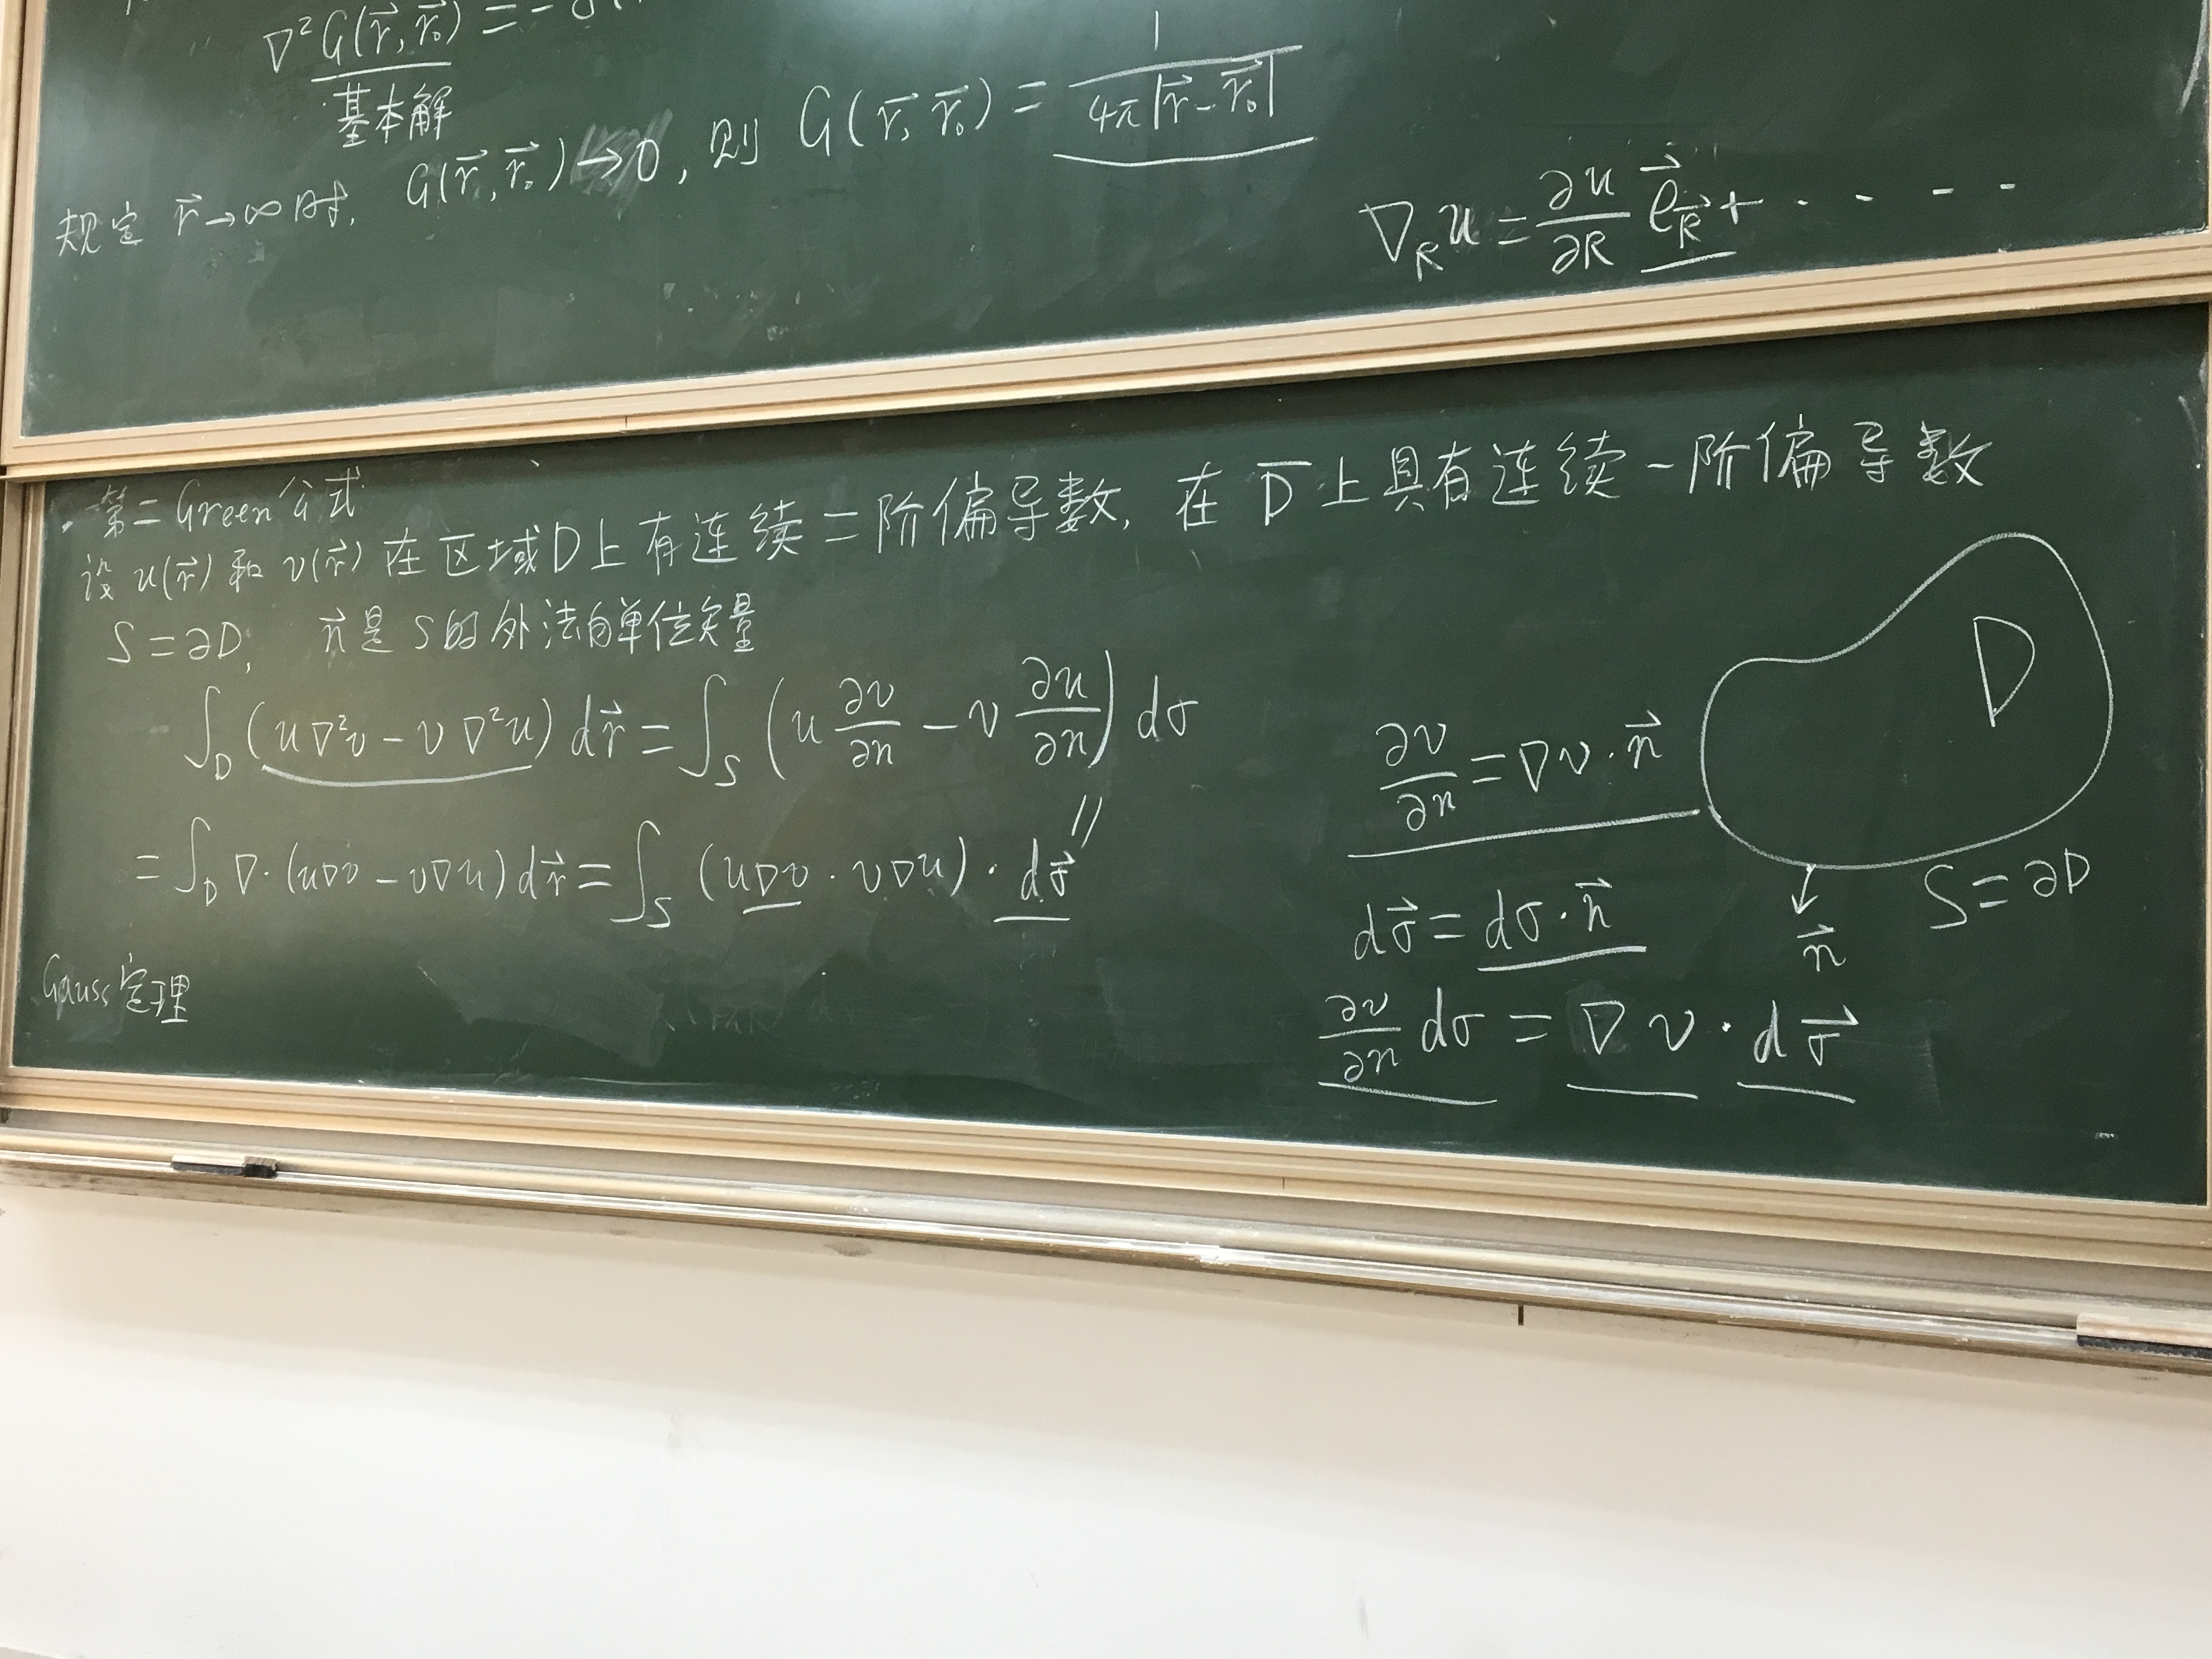 ∇²G(r⃗, r⃗₀) = -δ
基本解
规定 r⃗→∞时, G(r⃗, r⃗₀)→0, 则 G(r⃗, r⃗₀) = 1/(4π|r⃗-r⃗₀|)
∇_R u = ∂u/∂R e⃗_R⃗ + · - - -
· 第二Green公式
设 u(r⃗) 和 v(r⃗) 在区域D上有连续二阶偏导数, 在 D̅ 上具有连续一阶偏导数
S=∂D; n⃗是S的外法向单位矢量
∫_D (u∇²v - v∇²u) dr⃗ = ∫_S (u ∂v/∂n - v ∂u/∂n) dσ
= ∫_D ∇·(u∇v - v∇u) dr⃗ = ∫_S (u∇v · v∇u) · dσ⃗
Gauss定理
∂v/∂n = ∇v · n⃗
dσ⃗ = dσ · n⃗
∂v/∂n dσ = ∇v · dσ⃗
D
S=∂D
n⃗